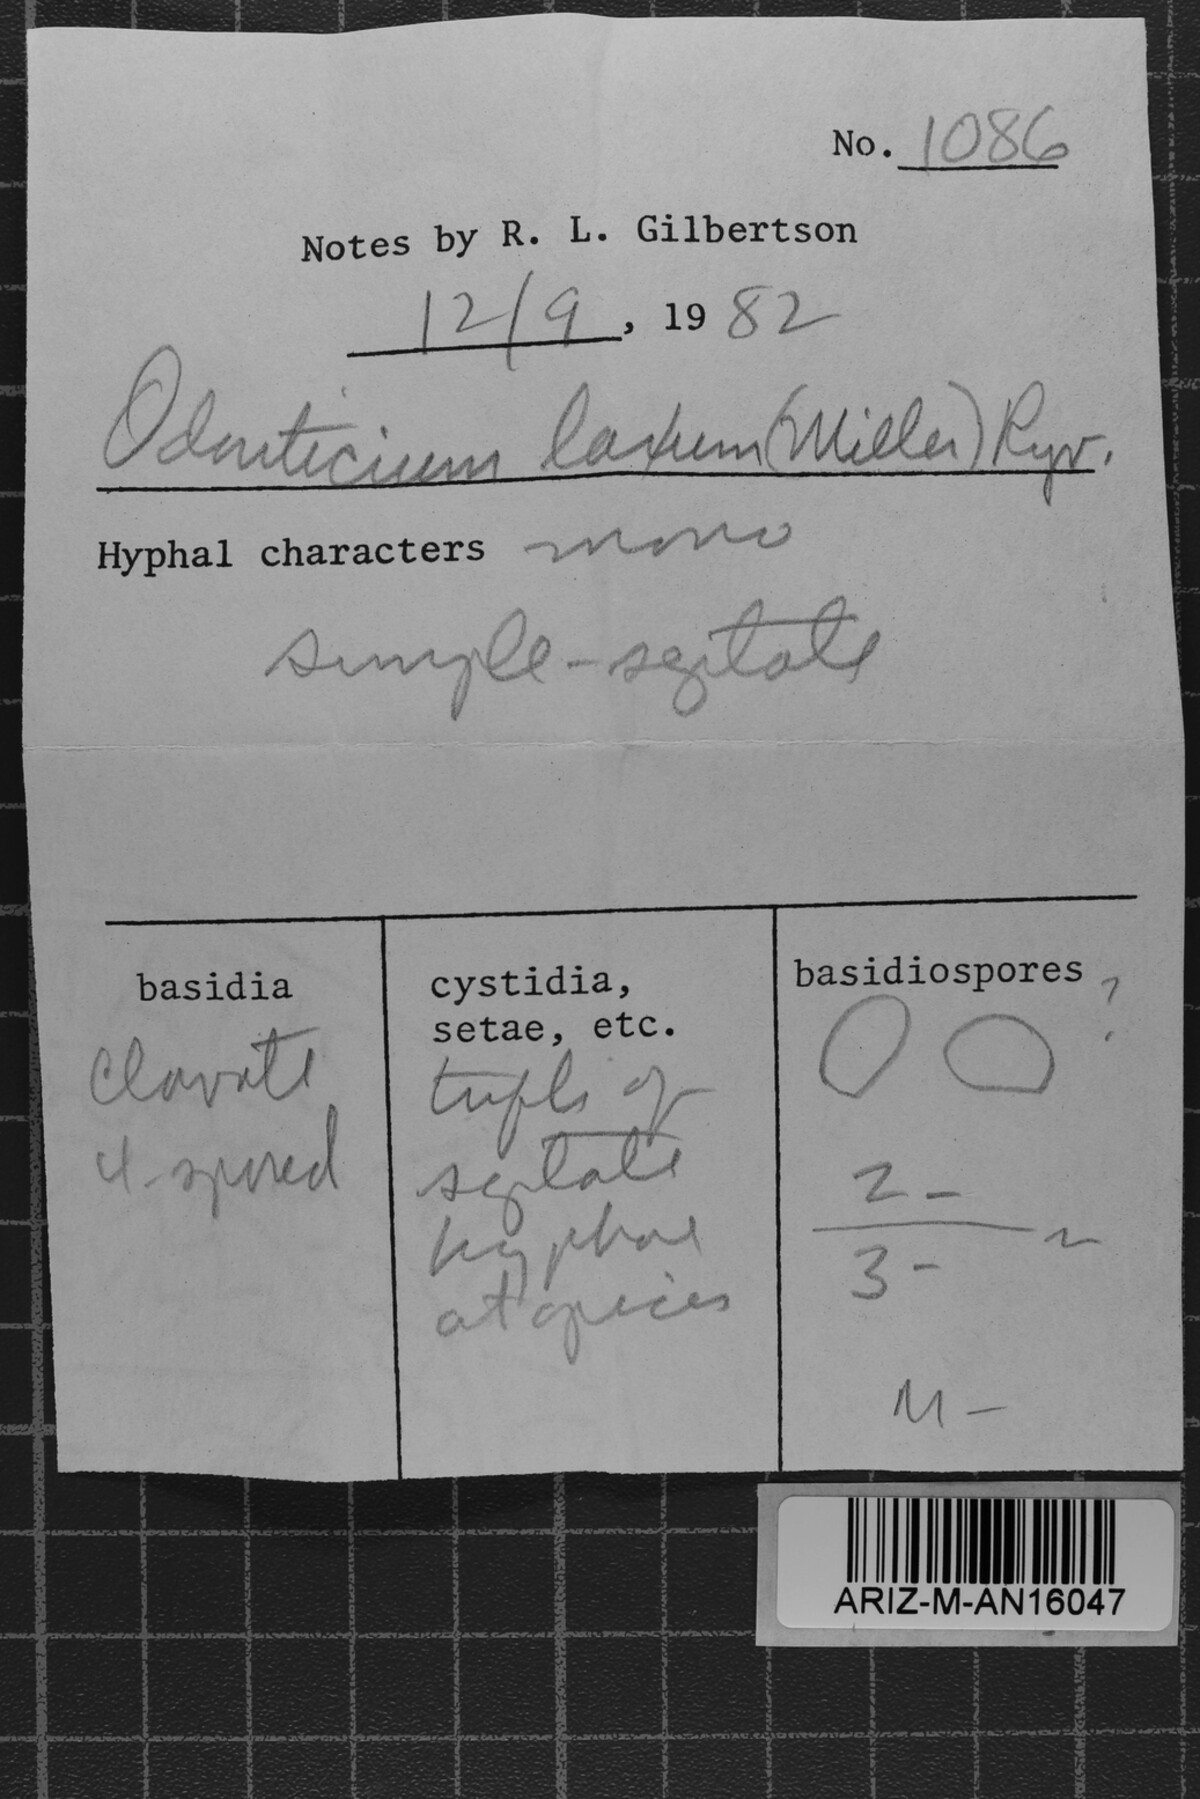 No. 1086
Notes by R. L. Gilbertson
12/9, 1982
Odonticium laxum (Miller) Ryv.
Hyphal characters mono
simple-septate
basidia
clavate
4-spored
cystidia,
setae, etc.
tufts of
septate
hyphae
at apices
basidiospores
?
2 -
3 -
M -
ARIZ-M-AN16047